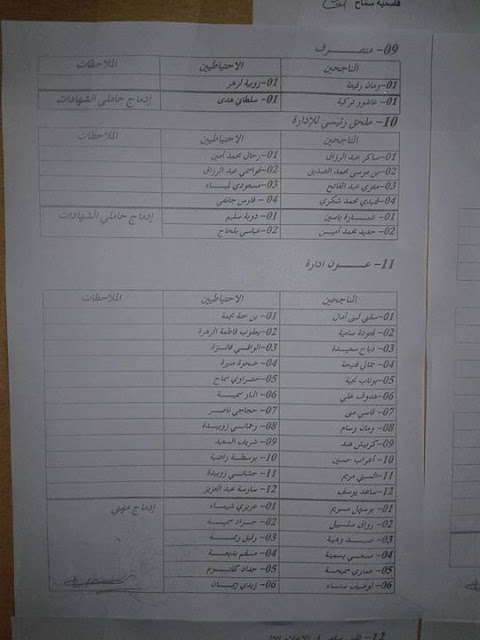 قاسمية سماح
09- متصرف
الناجحين الاحتياطيين الملاحظات
01-ومان رفيقة 01-زوبية لزهر
01- عاشور تركية 01- سلطاني هدى إدماج حاملي الشهادات
10- ملحق رئيسي للإدارة
الناجحين الاحتياطيين الملاحظات
01-ساكر عبد الرزاق 01-رحال محمد أمين
02-بن موسى محمد الصديق 02-قواسمي عبد الرزاق
03-مقري عبد الفاتح 03-مسعودي لمياء
04-قنيدي محمد شكري 04- فارس جانفي
01- عمارة ياسين 01- دوبة سليم إدماج حاملي الشهادات
02- حديد محمد أمين 02-عباسي بلحاج
11- عون ادارة
الناجحين الاحتياطيين الملاحظات
01-سلمي لبنى أمال 01- بن حنة نجمة
02- قعودة سامية 02-يعقوب فاطمة الزهرة
03- دباح سعيدة 03-الوافي فائزة
04- جمالي فتيحة 04- ضحوة منيرة
05-بوناب نجية 05-خضراوي سماح
06- هدوف علي 06- النار سمية
07- قاسي منى 07- حجاجي ناصر
08- ومان وسام 08- رحماني زوبيدة
09- كربيش هند 09- شريف السعيد
10- أعراب حسين 10- بوسطة راضية
11- السني مريم 11- حشاني زوبيدة
12- ساعد يوسف 12- ساوسة عبد العزيز
01- بوسهل مريم 01- عزيزي شيماء إدماج مهني
02- رواق سلسبيل 02- جراد سمية
03- عبد وهيبة 03- رقيق وهيبة
04- صحبي يسمينة 04- صغير بديعة
05- عماري سميحة 05- حداد كلثوم
06- لوصيف سناء 06- زيدي إيمان